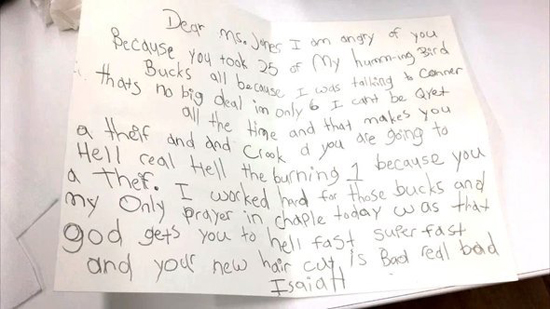 Dear Ms. Jones I am angry of you
Because, you took 25 of My humm-ing Bird
Bucks all because I was talking to Conner
thats no big deal im only 6 I cant be Qiet
all the time and that makes you
a theif and and Crook d you are going to
Hell real Hell the burning 1 because you
a Thef. I worked hard for those bucks and
my Only prayer in chaple today was that
god gets you to hell fast super fast
and your new hair cut is Bad real bad
Isaiah